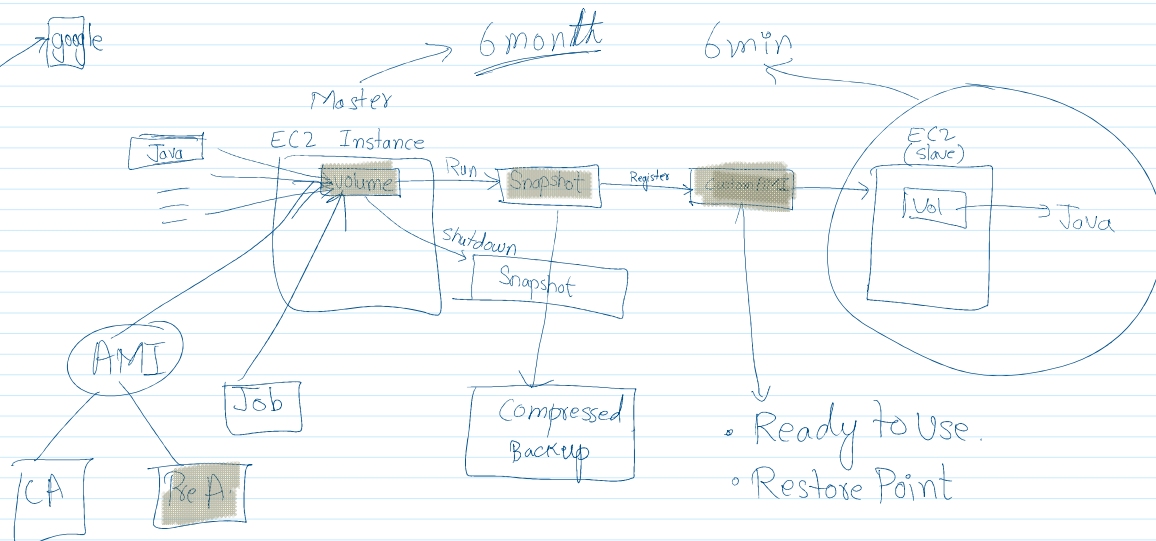 google
6 month
6 min
Master
EC2 Instance
Java
Volume
Run
Snapshot
Register
Custom AMI
EC2
(slave)
Vol
Java
shutdown
Snapshot
AMI
Job
Compressed
Backup
• Ready to Use.
• Restore Point
CA
Pre A.